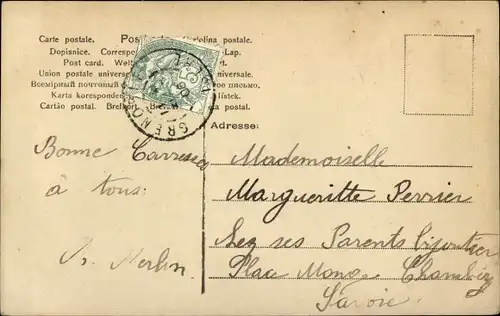 Carte postale. Pos olina postal.
Dopisnice. Correspo -Lap.
Post card. Welt
Union postale univers universale.
Всемірный почтовый ое письмо.
Karta korespond lístek.
Cartão postal. Brefkort a postal.
GRENO
Adresse:
Bonne Caresses
à tous:
Merlin.
Mademoiselle
Margueritte Perrier
chez ses Parents bijoutier
Place Monge Chambéry
Savoie.